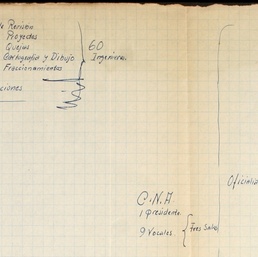 de Revision
Proyectos
Quejas
Cartografia y Dibujo
Fraccionamientos
60
Ingenieros
ciones
Oficiali
C.N.A
1 presidente
9 Vocales
Tres Salas